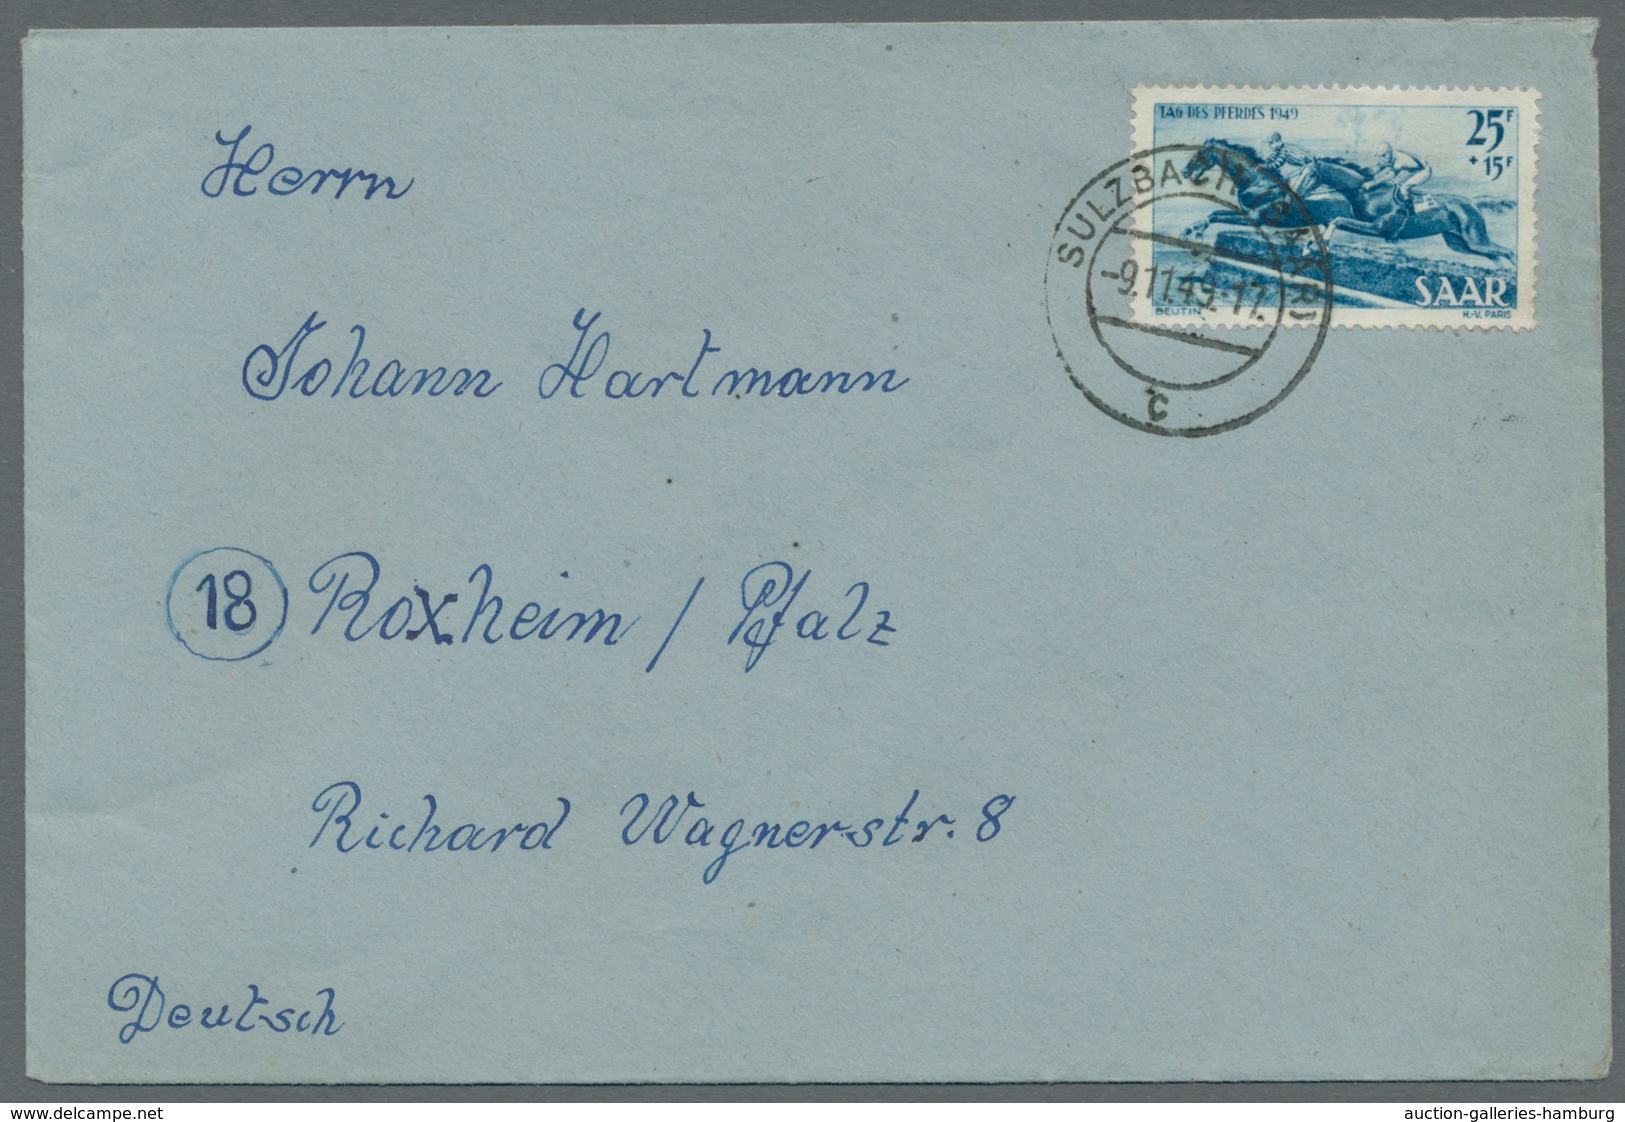 TAG DES PFERDES 1949
25F
+ 15F
SAAR
BEUTIN
H.-V. PARIS
SULZBACH (SAAR)
-9.11.49.-17.
c
Herrn
Johann Hartmann
18 Roxheim / Pfalz
Richard Wagnerstr. 8
Deutsch
www.delcampe.net
auction-galleries-hamburg